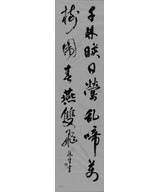 千林映日鶯亂啼萬
樹圍春燕雙飛